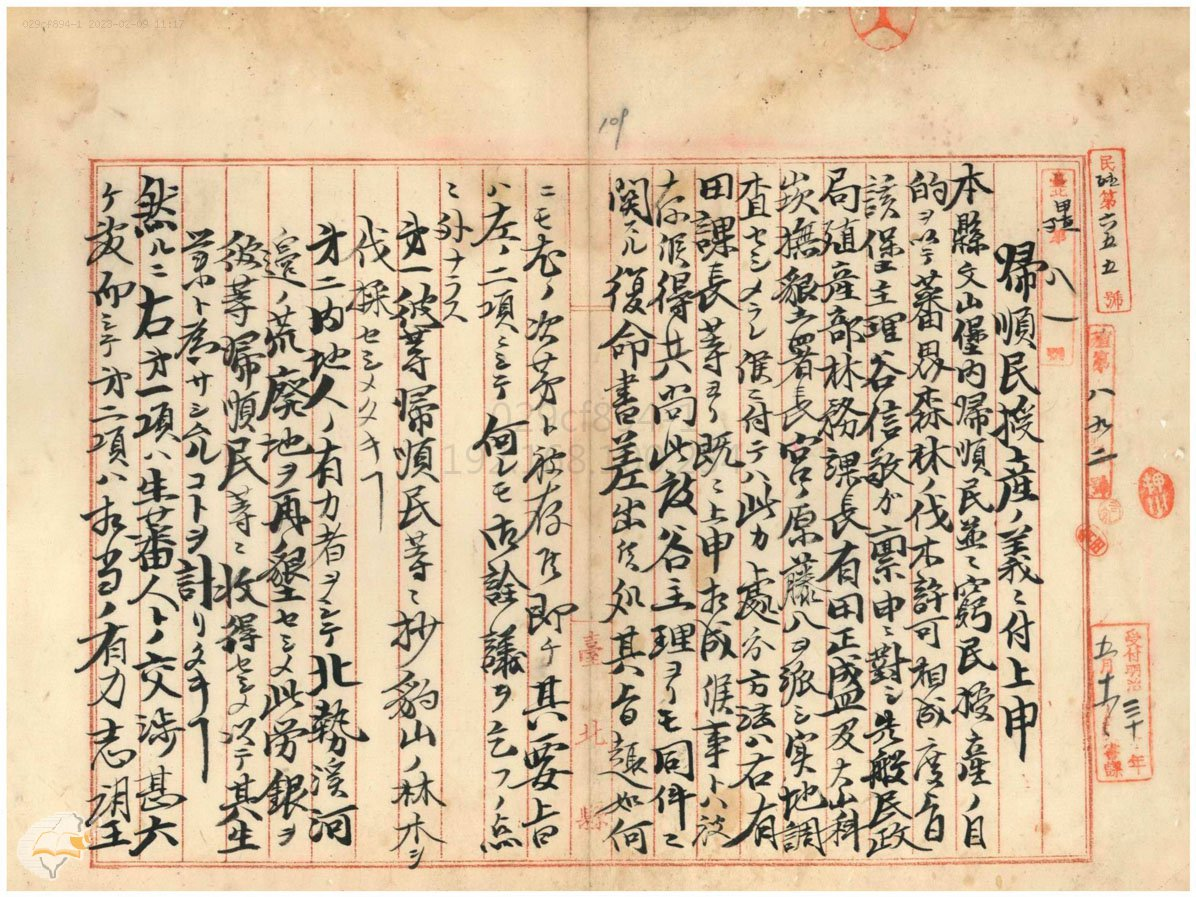 029cf894-1 2023-02-09 11:17
109
民殖第六五五號
殖第八九二號
受付明治三十年
五月
臺北縣
歸順民授産ノ義ニ付上申
本縣文山堡内歸順民並ニ窮民授産ノ目
的ヲ以テ蕃界森林ノ伐木許可相成度旨
該堡主理谷信敬ガ稟申ニ對シ先般民政
局殖産部林務課長有田正盛及大嵙
崁撫墾署長宮ノ原藤八ヲ派シ実地調
査セシメラレ候ニ付テハ此カ處分方法ハ右有
田課長等ヨリ既ニ上申相成候事トハ被
存候得共尚此故谷主理ヨリモ同件ニ
関スル復命書差出候処其旨趣如何
ニモ尤ノ次第ト被存候即チ其要旨
ハ左ノ二項ニシテ何レモ御詮議ヲ乞フノ点
ニ外ナラス
第一彼等歸順民等ニ抄豹山ノ林木ヲ
伐採セシメタキ
第二内地人ノ有力者ヲシテ北勢溪河
邉ノ荒廢地ヲ再墾セシメ此労銀ヲ
彼等歸順民等ニ收得セシメ以テ其生
業ト為サシムルコトヲ計リタキ
然ルニ右第一項ハ生蕃人トノ交渉甚六
ケ敷而シテ第二項ハ相当ノ有力志望
臺北縣